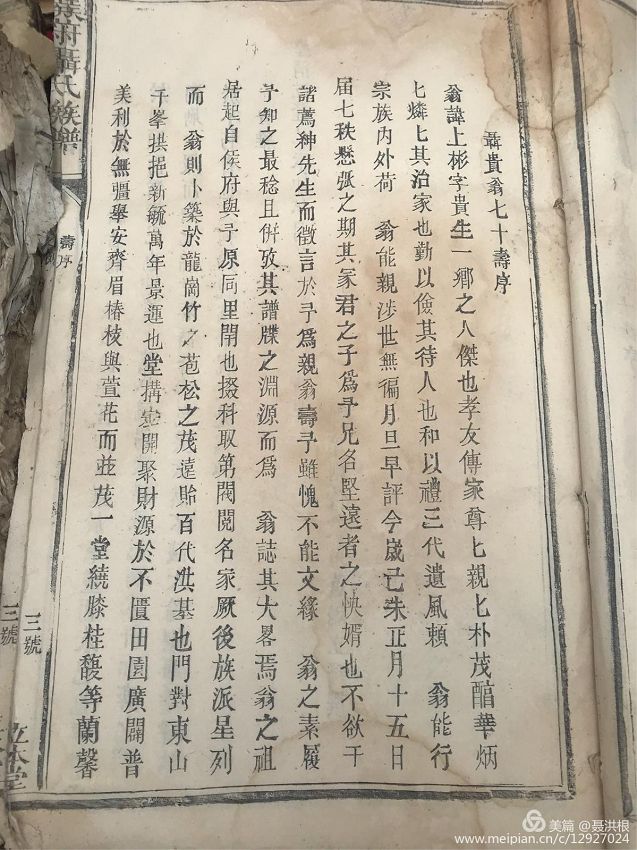 聶貴翁七十壽序
翁諱上彬字貴生一鄉之人傑也孝友傳家尊匕親匕朴茂醕華炳
匕燐匕其治家也勤以儉其待人也和以禮三代遺風賴 翁能行
宗族內外荷 翁能親涉世無徧月旦早評今歲己未正月十五日
届七秩懸弧之期其冢君之子為予兄名堅遠者之快婿也不欲干
諸薦紳先生而徵言於予為親翁壽予雖愧不能文緣 翁之素履
予知之最稔且併攷其譜牒之淵源而為 翁誌其大畧焉翁之祖
居起自侯府與予原同里閈也掇科取第閥閱名家厥後族派星列
而 翁則卜築於龍崗竹之苞松之茂遠貽百代洪基也門對東山
千峯拱挹新毓萬年景運也堂搆宏開聚財源於不匱田園廣闢普
美利於無疆舉安齊眉椿枝與萱花而並茂一堂繞膝桂馥等蘭馨
氏族譜
壽序
三號
三號
立本堂
美篇 @聂洪根
www.meipian.cn/c/12927024